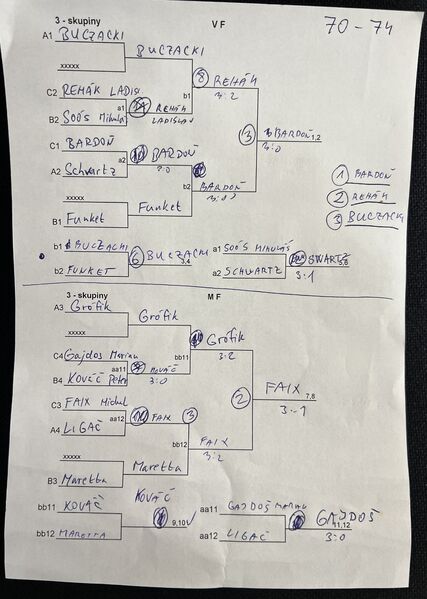 3 - skupiny V F 70 - 74
A1 BUCZACKI
BUCZACKI
xxxxx
8 REHÁK
3:2
C2 REHÁK LADISL.
b1
a1 REHÁK
LADISLAV
B2 Soós Mikuláš
3 BARDOŇ 1,2
3:0
C1 BARDOŇ
a2 BARDOŇ
A2 Schvartz
BARDOŇ
b2
xxxxx
Funket
B1 Funket
1 BARDOŇ
2 REHÁK
3 BUCZACKI
b1 BUCZACKI
6 BUCZACKI 3,4
b2 FUNKET
a1 SOÓS MIKULÁŠ
SWARTZ 5,6
a2 SCHVARTZ
3:1
3 - skupiny M F
A3 Grófik
Grófik
xxxxx
Grófik
bb11
3:2
C4 Gajdos Marian
aa11 KOVÁČ
3:0
B4 KOVÁČ Peter
2 FAIX 7,8
3:1
C3 FAIX Michal
aa12 FAIX
3
A4 LIGAČ
bb12
FAIX
3:2
xxxxx
Maretta
B3 Maretta
bb11 KOVÁČ
KOVÁČ
9,10
bb12 MARETTA
aa11 GAJDOŠ MARIAN
GAJDOŠ
11,12
aa12 LIGAČ
3:0